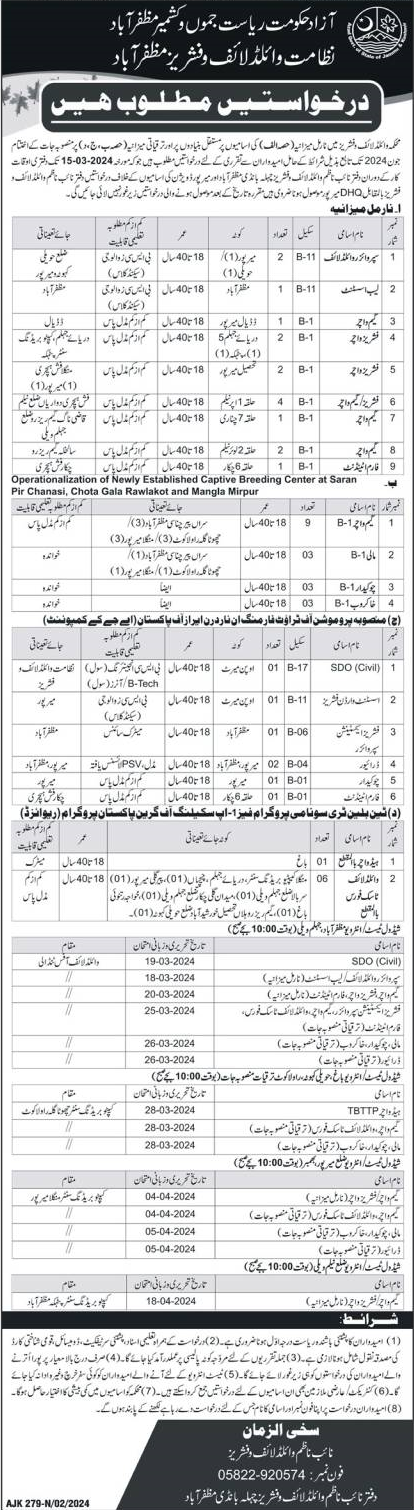 آزاد حکومت ریاست جموں و کشمیر مظفرآباد
نظامت وائلڈ لائف و فشریز مظفرآباد
درخواستیں مطلوب ہیں
محکمہ وائلڈ لائف و فشریز میں نارمل میزانیہ (حصہ الف) کی اسامیوں پر مستقل بنیادوں پر اور ترقیاتی میزانیہ (حصہ ب، ج، د) پر منصوبہ جات کے اختتام
جون 2024 تک تابع ذیل شرائط کے حامل امیدواران سے تقرری کے لئے درخواستیں مطلوب ہیں جو کہ مورخہ 15-03-2024 تک دفتری اوقات
کار کے دوران دفتر نائب ناظم وائلڈ لائف و فشریز چہلہ بانڈی مظفرآباد اور میرپور ڈویژن کی اسامیوں کے خلاف درخواستیں دفتر نائب ناظم وائلڈ لائف و
فشریز بالمقابل DHQ میرپور موصول ہونا ضروری ہیں مقررہ تاریخ کے بعد موصول ہونے والی درخواستیں زیر غور نہیں لائی جائیں گی۔
ا۔ نارمل میزانیہ
نمبر شمار نام اسامی سکیل تعداد کوٹہ عمر کم از کم مطلوبہ تعلیمی قابلیت جائے تعیناتی
1 سپروائزر وائلڈ لائف B-11 2 میرپور (1)/ حویلی (1) 18 تا 40 سال بی ایس سی زوالوجی (سیکنڈ کلاس) ضلع حویلی کہوٹہ میرپور
2 لیب اسسٹنٹ B-11 1 مظفرآباد 18 تا 40 سال بی ایس سی زوالوجی (سیکنڈ کلاس) مظفرآباد
3 گیم واچر B-1 1 ڈڈیال میرپور 18 تا 40 سال کم از کم مڈل پاس ڈڈیال
4 فشریز واچر B-1 2 18 تا 40 سال کم از کم مڈل پاس
5 فشریز واچر B-1 2 تحصیل میرپور 18 تا 40 سال کم از کم مڈل پاس منگلا فش ہچری (1) میرپور (1)
6 فشریز/گیم واچر B-1 4 حلقہ 1 اپر نیلم 18 تا 40 سال کم از کم مڈل پاس فش ہچری دواریاں ضلع نیلم
7 گیم واچر B-1 1 حلقہ 7 چناری 18 تا 40 سال کم از کم مڈل پاس قاضی ناگ گیم ریزرو ضلع جہلم ویلی
8 گیم واچر B-1 2 حلقہ 2 لوئر نیلم 18 تا 40 سال کم از کم مڈل پاس سالخلہ گیم ریزرو
9 فارم اٹینڈنٹ B-1 1 حلقہ 6 چکار 18 تا 40 سال کم از کم مڈل پاس چکار فش ہچری
ب۔ Operationalization of Newly Established Captive Breeding Center at Saran
Pir Chanasi, Chota Gala Rawlakot and Mangla Mirpur
نمبر شمار نام اسامی تعداد جائے تعیناتی عمر کم از کم مطلوبہ تعلیمی قابلیت
1 گیم واچر B-1 9 سراں پیر چناسی مظفرآباد (3)/ چھوٹا گلہ راولاکوٹ (3)/ منگلا میرپور (3) 18 تا 40 سال کم از کم مڈل پاس
2 مالی B-1 03 سراں پیر چناسی مظفرآباد (1)/ چھوٹا گلہ راولاکوٹ (1)/ منگلا میرپور (1) 18 تا 40 سال خواندہ
3 چوکیدار B-1 03 ایضاً 18 تا 40 سال خواندہ
4 خاکروب B-1 03 ایضاً 18 تا 40 سال خواندہ
(ج) منصوبہ پروموشن آف ٹراؤٹ فارمنگ ان ناردرن ایریاز آف پاکستان (اے جے کے کمپوننٹ)
نمبر شمار نام اسامی سکیل تعداد کوٹہ عمر کم از کم مطلوبہ تعلیمی قابلیت جائے تعیناتی
1 SDO (Civil) B-17 01 اوپن میرٹ 18 تا 40 سال بی ایس سی انجینئرنگ (سول) B-Tech/ آنرز (سول) نظامت وائلڈ لائف و فشریز
2 اسسٹنٹ وارڈن فشریز B-11 01 اوپن میرٹ 18 تا 40 سال بی ایس سی زوالوجی (سیکنڈ کلاس) میرپور
3 فشریز ایکسٹینشن سپروائزر B-06 01 مظفرآباد 18 تا 40 سال میٹرک سائنس مظفرآباد
4 ڈرائیور B-04 02 میرپور مظفرآباد 18 تا 40 سال مڈل، PSV لائسنس یافتہ میرپور مظفرآباد
5 چوکیدار B-01 01 میرپور 18 تا 40 سال کم از کم مڈل پاس میرپور
6 فارم اٹینڈنٹ B-01 01 حلقہ 6 چکار 18 تا 40 سال کم از کم مڈل پاس چکار فش ہچری
(د) ٹین بلین ٹری سونامی پروگرام فیز 1- اپ سکیلنگ آف گرین پاکستان پروگرام (ریوائزڈ)
نمبر شمار نام اسامی تعداد کوٹہ/جائے تعیناتی عمر کم از کم مطلوبہ تعلیمی قابلیت
1 ہیڈ واچر بالمقطع 01 باغ 18 تا 40 سال میٹرک
2 وائلڈ لائف ٹاسک فورس بالمقطع 06 18 تا 40 سال کم از کم مڈل پاس
شیڈول ٹیسٹ/انٹرویو مظفرآباد، جہلم ویلی (بوقت 10:00 بجے صبح)
نام اسامی تاریخ تحریری و زبانی امتحان مقام
SDO (Civil) 19-03-2024
سپروائزر وائلڈ لائف/لیب اسسٹنٹ (نارمل میزانیہ) 18-03-2024 //
گیم واچر، فشریز واچر، فارم اٹینڈنٹ (نارمل میزانیہ) 20-03-2024 //
فشریز ایکسٹینشن سپروائزر، گیم واچر، وائلڈ لائف ٹاسک فورس، فارم اٹینڈنٹ (ترقیاتی منصوبہ جات) 25-03-2024 //
مالی، چوکیدار، خاکروب (ترقیاتی منصوبہ جات) 26-03-2024 //
ڈرائیور (ترقیاتی منصوبہ جات) 26-03-2024 //
شیڈول ٹیسٹ/انٹرویو باغ، حویلی کہوٹہ، راولاکوٹ ترقیاتی منصوبہ جات (بوقت 10:00 بجے صبح)
نام اسامی تاریخ تحریری و زبانی امتحان مقام
ہیڈ واچر TBTTP 28-03-2024 کیپٹو بریڈنگ سنٹر چھوٹا گلہ راولاکوٹ
گیم واچر، وائلڈ لائف ٹاسک فورس (ترقیاتی منصوبہ جات) 28-03-2024 //
مالی، چوکیدار، خاکروب (ترقیاتی منصوبہ جات) 28-03-2024 //
شیڈول ٹیسٹ/انٹرویو ضلع میرپور، بھمبر (بوقت 10:00 بجے صبح)
نام اسامی تاریخ تحریری و زبانی امتحان مقام
گیم واچر/فشریز واچر (نارمل میزانیہ) 04-04-2024 کیپٹو بریڈنگ سنٹر منگلا میرپور
گیم واچر، وائلڈ لائف ٹاسک فورس (ترقیاتی منصوبہ جات) 04-04-2024 //
مالی، چوکیدار، خاکروب (ترقیاتی منصوبہ جات) 05-04-2024 //
ڈرائیور (ترقیاتی منصوبہ جات) 05-04-2024 //
شیڈول ٹیسٹ/انٹرویو ضلع نیلم ویلی (بوقت 10:00 بجے صبح)
نام اسامی تاریخ تحریری و زبانی امتحان مقام
گیم واچر/فشریز واچر (نارمل میزانیہ) 18-04-2024 کیپٹو بریڈنگ سنٹر پٹہکہ مظفرآباد
شرائط:
(1) امیدواران کا پشتنی باشندہ ریاست درجہ اول ہونا ضروری ہے۔ (2) درخواست کے ہمراہ تعلیمی اسناد، پشتنی سرٹیفکیٹ، ڈومیسائل، قومی شناختی کارڈ
کی مصدقہ نقول شامل ہونا لازمی ہے۔ (3) جملہ تقرریوں کے لئے مروجہ کوٹہ پالیسی پر عملدرآمد کیا جائے گا۔ (4) صرف درج بالا معیار پر پورا اترنے
والے امیدواران کو ہی زیر غور لائے جائیں گے۔ (5) ٹیسٹ/انٹرویو کے لئے آنے والے امیدواران کو کوئی سفر خرچ وغیرہ ادا نہ کیا جائے
گا۔ (6) کنٹریکٹ/عارضی ملازمین بھی ان اسامیوں کے لئے درخواستیں جمع کروا سکتے ہیں۔ (7) محکمہ کو اسامیوں میں کمی بیشی کا اختیار حاصل ہوگا۔
(8) امیدواران درخواست پر اپنا فون نمبر اور اسامی کا نام جس کے لئے درخواست دے رہا ہے لکھنے کے پابند ہوں گے۔
سخی الزمان
نائب ناظم وائلڈ لائف و فشریز
فون نمبر: 05822-920574
دفتر نائب ناظم وائلڈ لائف و فشریز چہلہ بانڈی مظفرآباد
AJK 279-N/02/2024